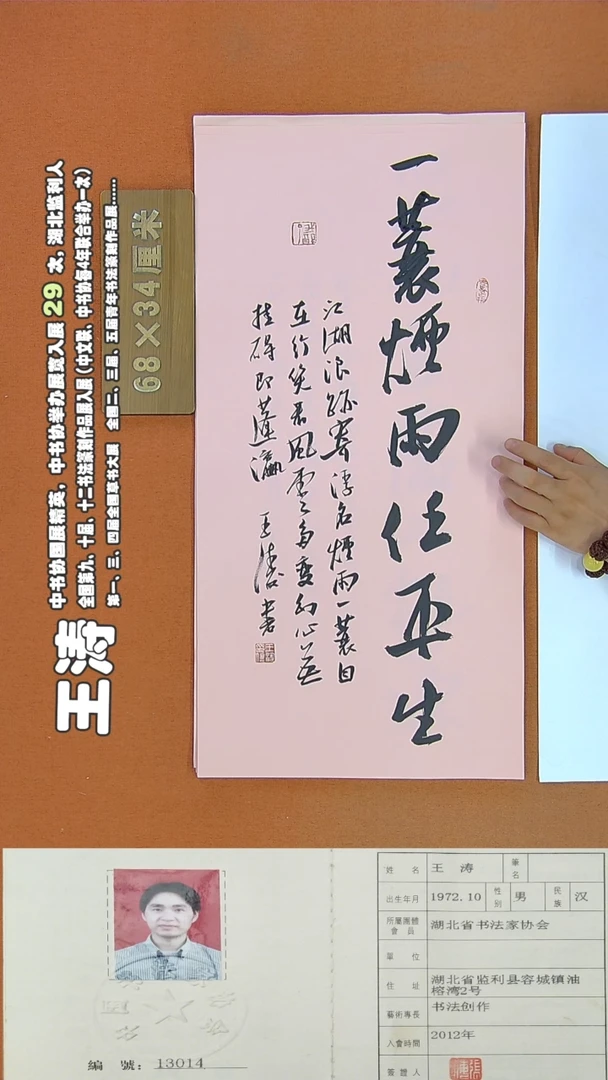 一蓑煙雨任平生
江湖浪跡寄浮名煙雨一蓑自
在行笑看風雲多變幻心無
挂碍即蓬瀛 王涛書
68×34厘米
中书协国展精英,中书协举办展赛入展 29 次,湖北监利人
全国第九、十届、十二书法篆刻作品展入展(中文联、中书协每4年联合举办一次)
第一、三、四届全国扇书大展 全国二、三届、五届青年书法篆刻作品展......
王涛
姓名 王涛 筆名
出生年月 1972.10 性別 男 民族 汉
所屬團體會員 湖北省书法家协会
單位
住址 湖北省监利县容城镇油榕湾2号
藝術專長 书法创作
入會時間 2012年
簽證人
編號:13014